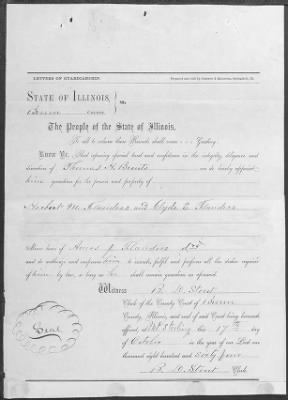 LETTERS OF GUARDIANSHIP.
STATE OF ILLINOIS,
COUNTY. } SS.
The People of the State of Illinois,
To all to whom these Presents shall come . . . Greeting:
Know Ye, That reposing special trust and confidence in the integrity, diligence and
discretion of Thomas do hereby appoint
him guardian for the person and property of
Herbert M. Flanders and Clyde E. Flanders
Minor heirs of Amos J. Flanders decd
and do authorize and empower him to do, realize, and perform all the duties required
of him by law, so long as he shall remain guardian as aforesaid.
Witness
Clerk of the County Court of Brown
County, Illinois, and seal of said Court being hereunto
affixed, at Mt Sterling this 17th day
of October in the year of our Lord one
thousand eight hundred and sixty four
Seal
Clerk